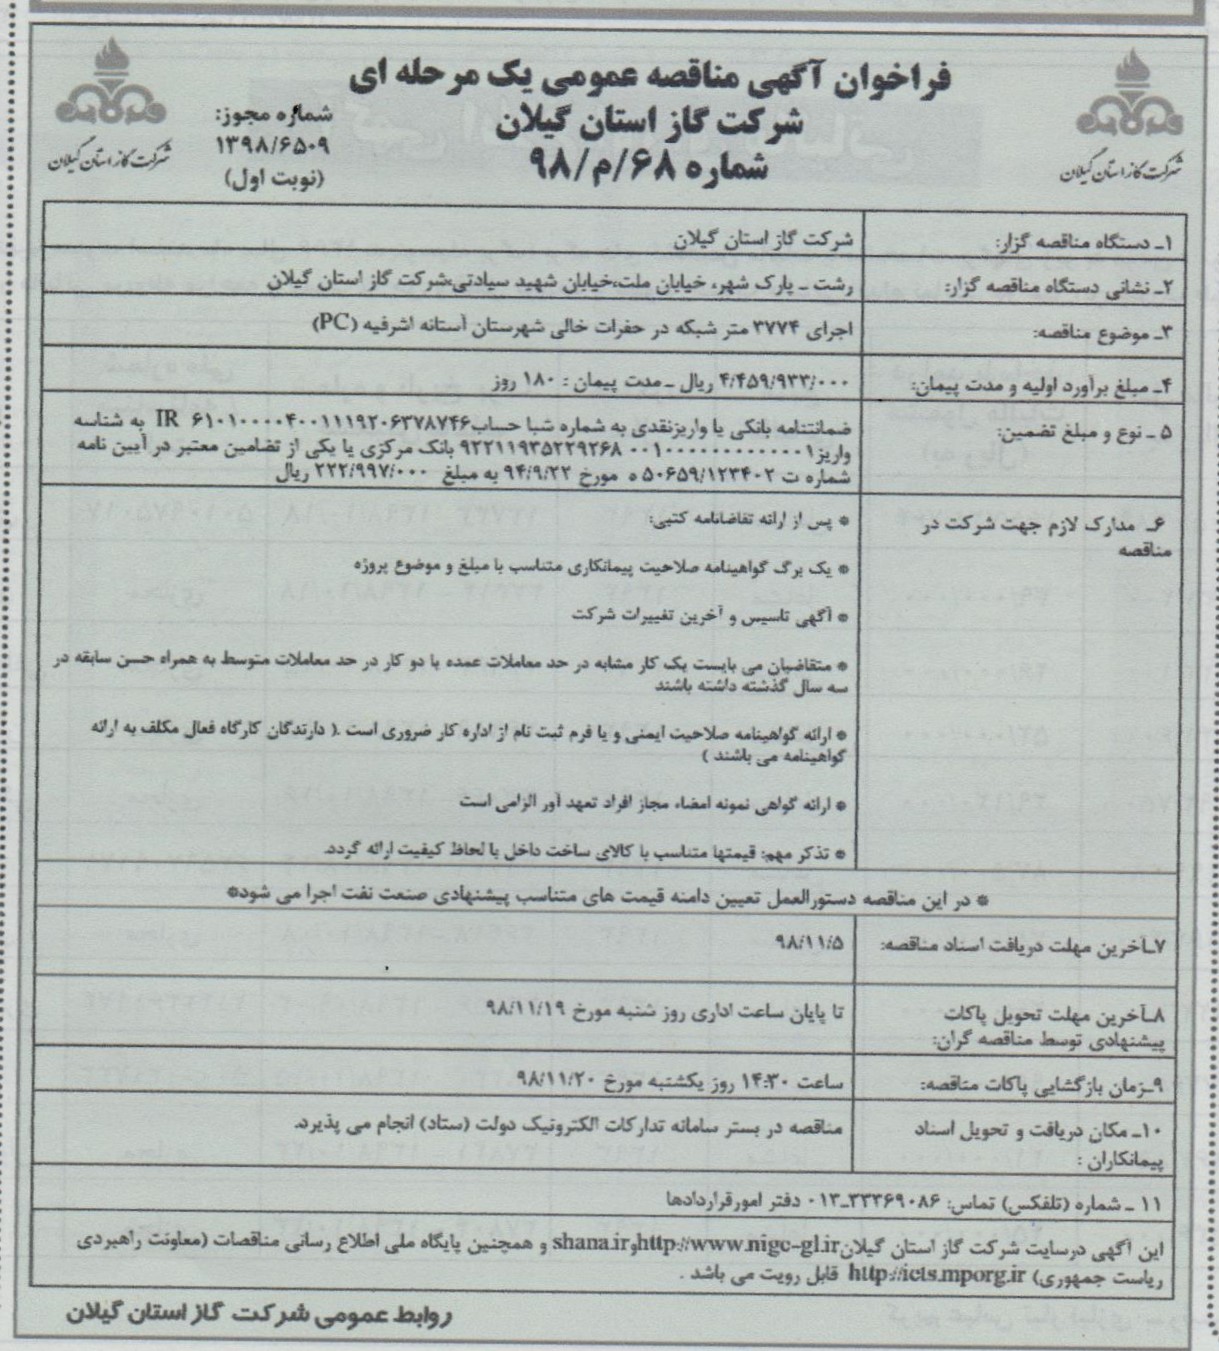 فراخوان آگهی مناقصه عمومی یک مرحله ای
شرکت گاز استان گیلان
شماره ۶۸/م/۹۸
شماره مجوز:
۱۳۹۸/۶۵۰۹
(نوبت اول)
شرکت گاز استان گیلان
شرکت گاز استان گیلان
۱ـ دستگاه مناقصه گزار:
شرکت گاز استان گیلان
۲ـ نشانی دستگاه مناقصه گزار:
رشت ـ پارک شهر، خیابان ملت،خیابان شهید سیادتی،شرکت گاز استان گیلان
۳ـ موضوع مناقصه:
اجرای ۳۷۷۴ متر شبکه در حفرات خالی شهرستان آستانه اشرفیه (PC)
۴ـ مبلغ برآورد اولیه و مدت پیمان:
۴/۴۵۹/۹۳۳/۰۰۰ ریال ـ مدت پیمان : ۱۸۰ روز
۵ ـ نوع و مبلغ تضمین:
ضمانتنامه بانکی یا واریزنقدی به شماره شبا حساب۶۱۰۱۰۰۰۰۴۰۰۱۱۱۹۲۰۶۳۷۸۷۴۶ IR به شناسه
بانک مرکزی یا یکی از تضامین معتبر در آیین نامه
شماره ت ۵۰۶۵۹/۱۲۳۴۰۲ ه مورخ ۹۴/۹/۲۲ به مبلغ ۲۲۲/۹۹۷/۰۰۰ ریال
۶ـ مدارک لازم جهت شرکت در
مناقصه
* پس از ارائه تقاضانامه کتبی:
* یک برگ گواهینامه صلاحیت پیمانکاری متناسب با مبلغ و موضوع پروژه
* آگهی تاسیس و آخرین تغییرات شرکت
* متقاضیان می بایست یک کار مشابه در حد معاملات عمده یا دو کار در حد معاملات متوسط به همراه حسن سابقه در
سه سال گذشته داشته باشند
* ارائه گواهینامه صلاحیت ایمنی و یا فرم ثبت نام از اداره کار ضروری است .( دارندگان کارگاه فعال مکلف به ارائه
گواهینامه می باشند )
* ارائه گواهی نمونه امضاء مجاز افراد تعهد آور الزامی است
* تذکر مهم: قیمتها متناسب با کالای ساخت داخل با لحاظ کیفیت ارائه گردد.
* در این مناقصه دستورالعمل تعیین دامنه قیمت های متناسب پیشنهادی صنعت نفت اجرا می شود*
۷ـآخرین مهلت دریافت اسناد مناقصه:
۹۸/۱۱/۵
۸ـآخرین مهلت تحویل پاکات
پیشنهادی توسط مناقصه گران:
تا پایان ساعت اداری روز شنبه مورخ ۹۸/۱۱/۱۹
۹ـزمان بازگشایی پاکات مناقصه:
ساعت ۱۴:۳۰ روز یکشنبه مورخ ۹۸/۱۱/۲۰
۱۰ـ مکان دریافت و تحویل اسناد
پیمانکاران :
مناقصه در بستر سامانه تدارکات الکترونیک دولت (ستاد) انجام می پذیرد.
۱۱ ـ شماره (تلفکس) تماس: ۳۳۳۶۹۰۸۶ـ۰۱۳ دفتر امورقراردادها
این آگهی درسایت شرکت گاز استان گیلانhttp://www.nigc-gl.irوshana.ir و همچنین پایگاه ملی اطلاع رسانی مناقصات (معاونت راهبردی
ریاست جمهوری) http://icts.mporg.ir قابل رویت می باشد .
روابط عمومی شرکت گاز استان گیلان